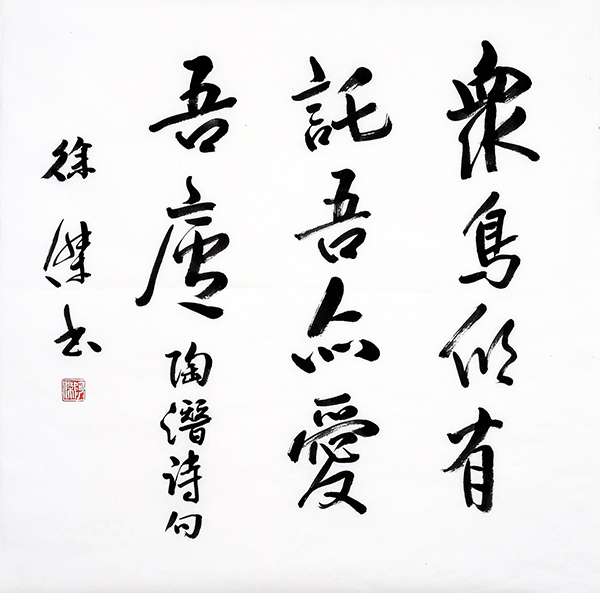 衆鳥欣有
託吾亦愛
吾廬 陶潛詩句
徐傑书